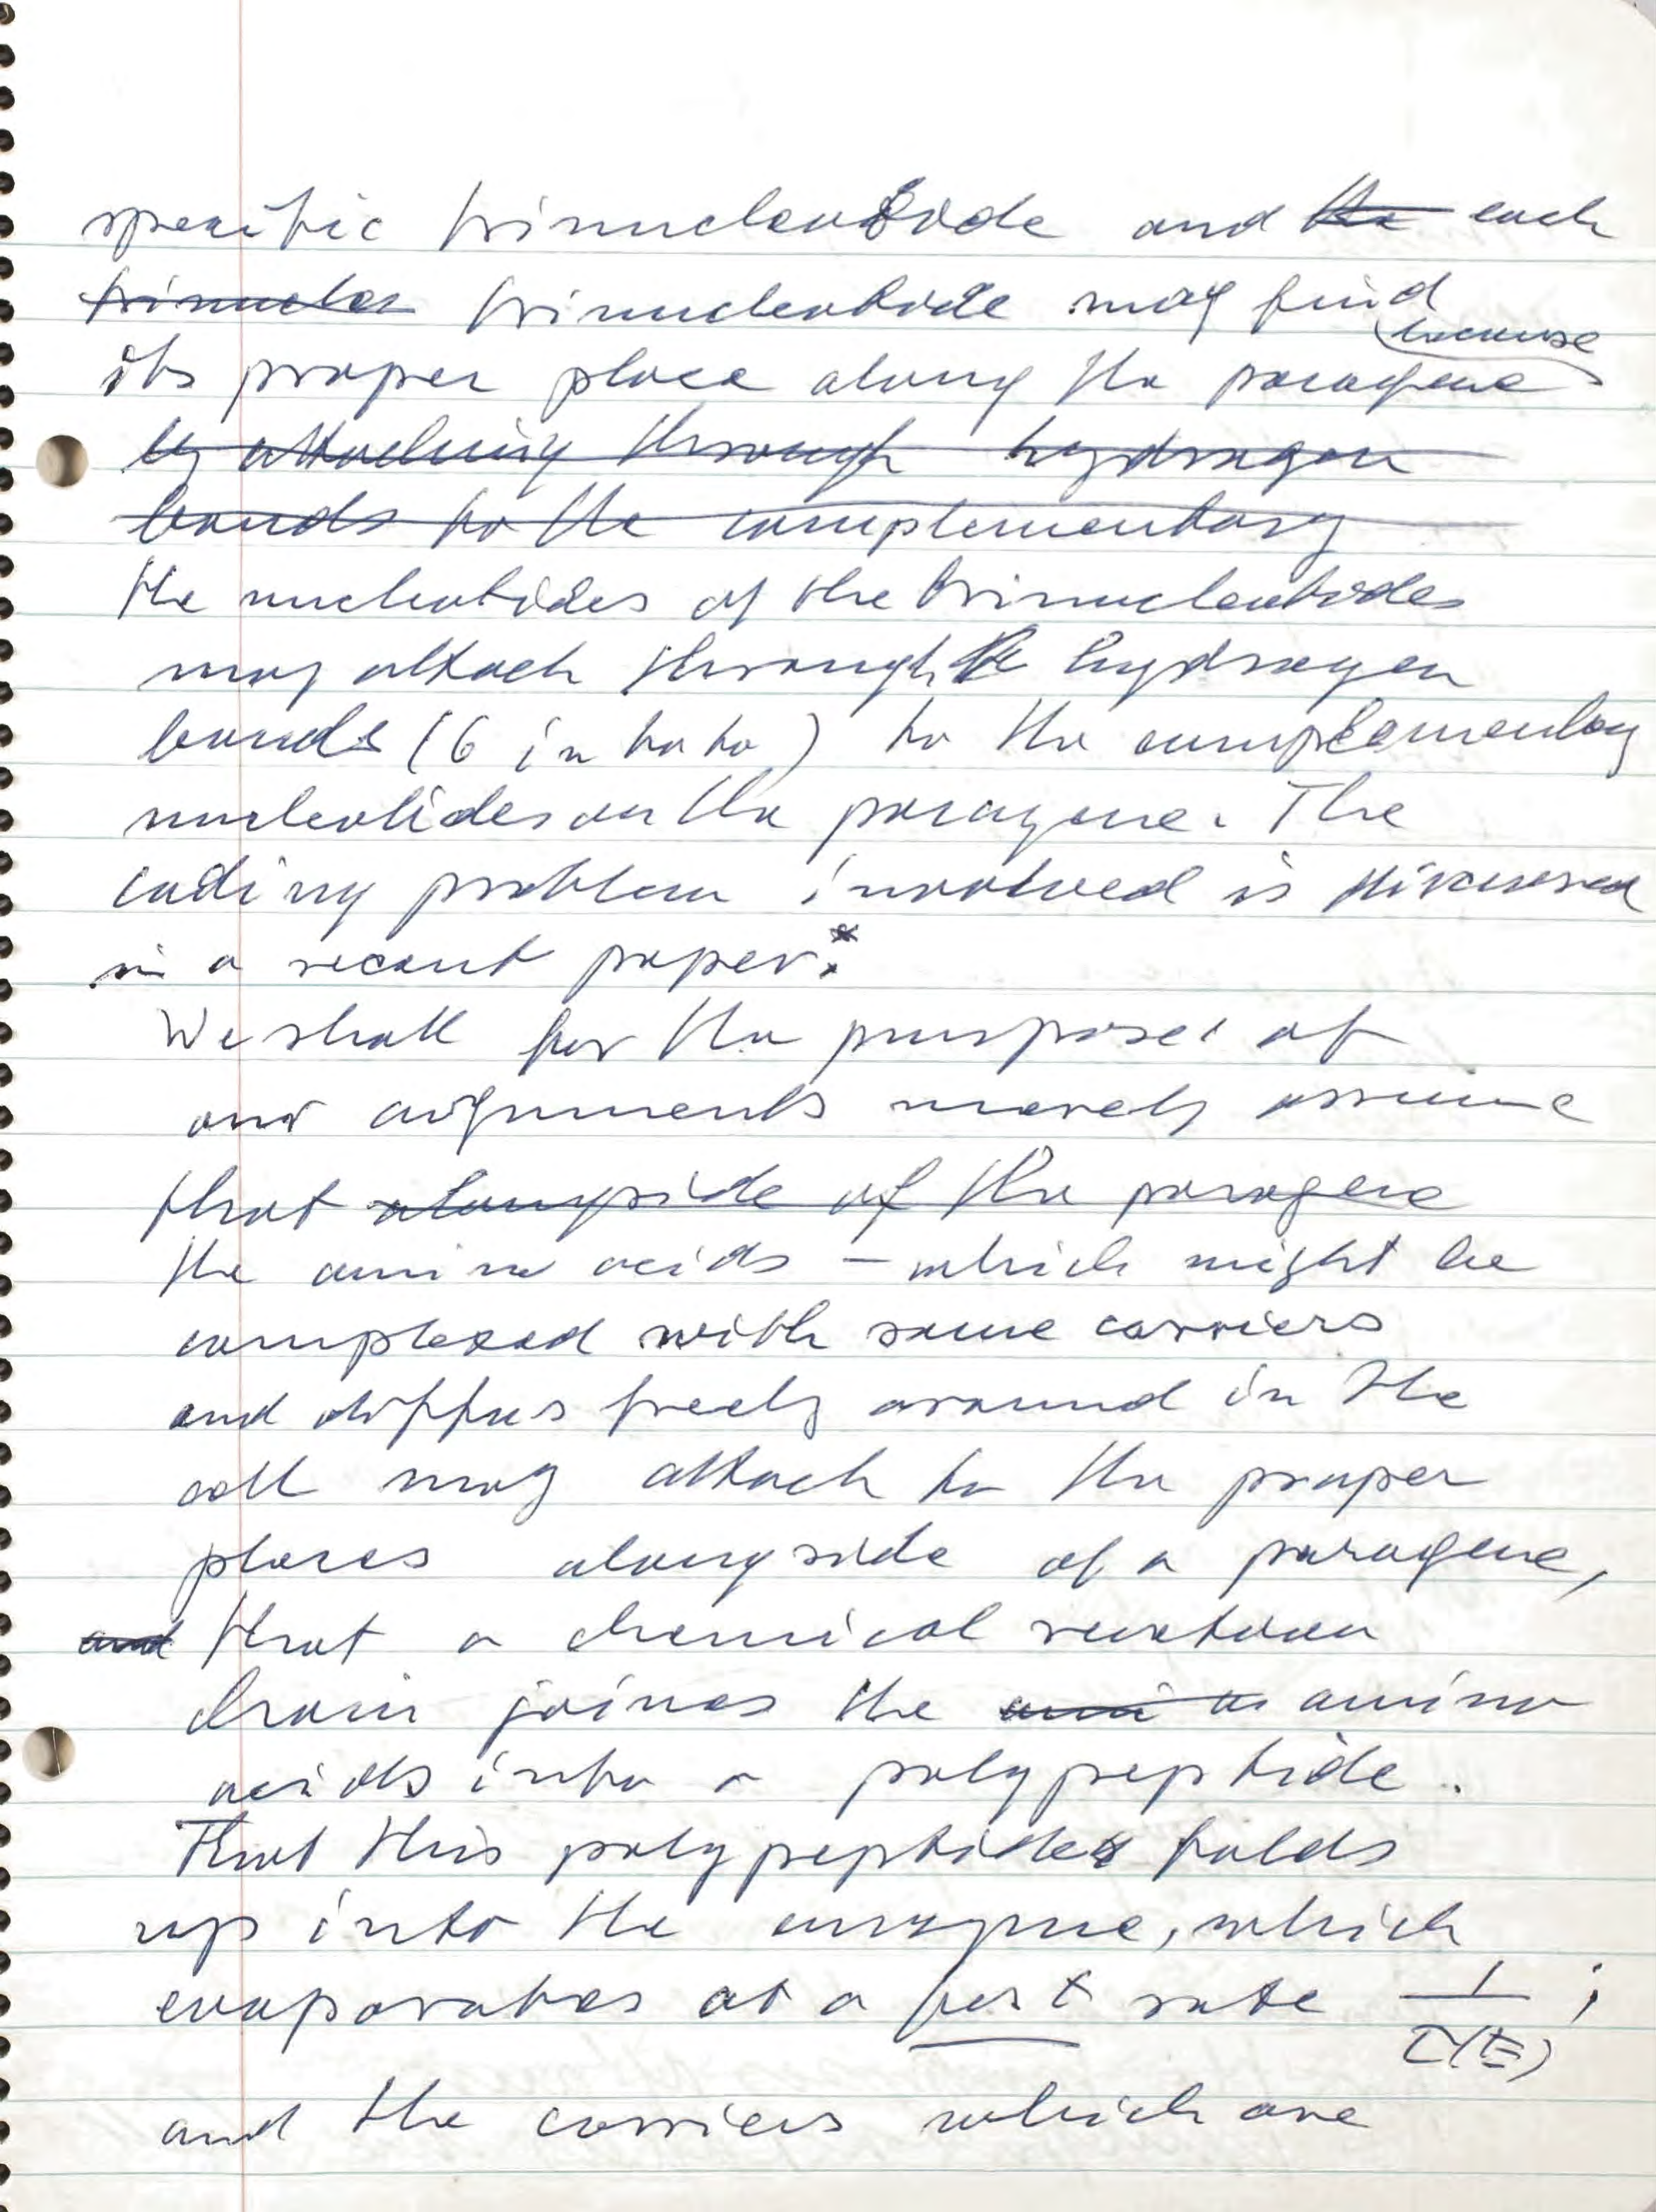 specific trinucleotide and the each
trinucleo trinucleotide may find
its proper place along the paragene because
by attaching through hydrogen
bonds to the complementary
the nucleotides of the trinucleotides
may attach through hydrogen
bonds (6 in toto) to the complementary
nucleotides on the paragene. The
coding problem involved is discussed
in a recent paper.*
We shall for the purposes of
our arguments merely assume
that alongside of the paragene
the amino acids – which might be
complexed with some carriers
and diffuse freely around in the
cell may attach to the proper
places alongside of a paragene,
and that a chemical reaction
chain joines the amino
acids into a polypeptide.
That this polypeptide folds
up into the enzyme, which
evaporates at a fast rate 1/τ(E) ;
and the carriers which are